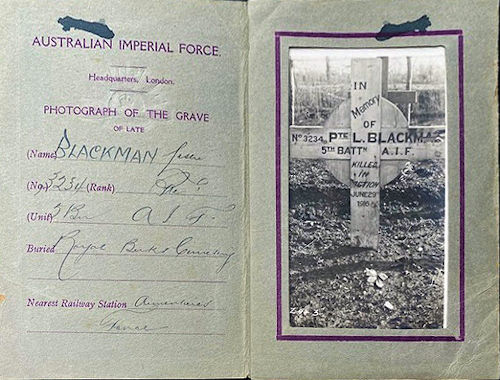 AUSTRALIAN IMPERIAL FORCE.
Headquarters, London.
PHOTOGRAPH OF THE GRAVE
OF LATE
(Name) BLACKMAN Leslie
(No.) 3234 (Rank) Pte
(Unit) 5 Bn A I F
Buried Royal Berks Cemetery
Nearest Railway Station Armentieres
France
IN
Memory
OF
No 3234 PTE L. BLACKMAN
5TH BATTN A.I.F.
KILLED
IN
ACTION
JUNE 29TH
1916